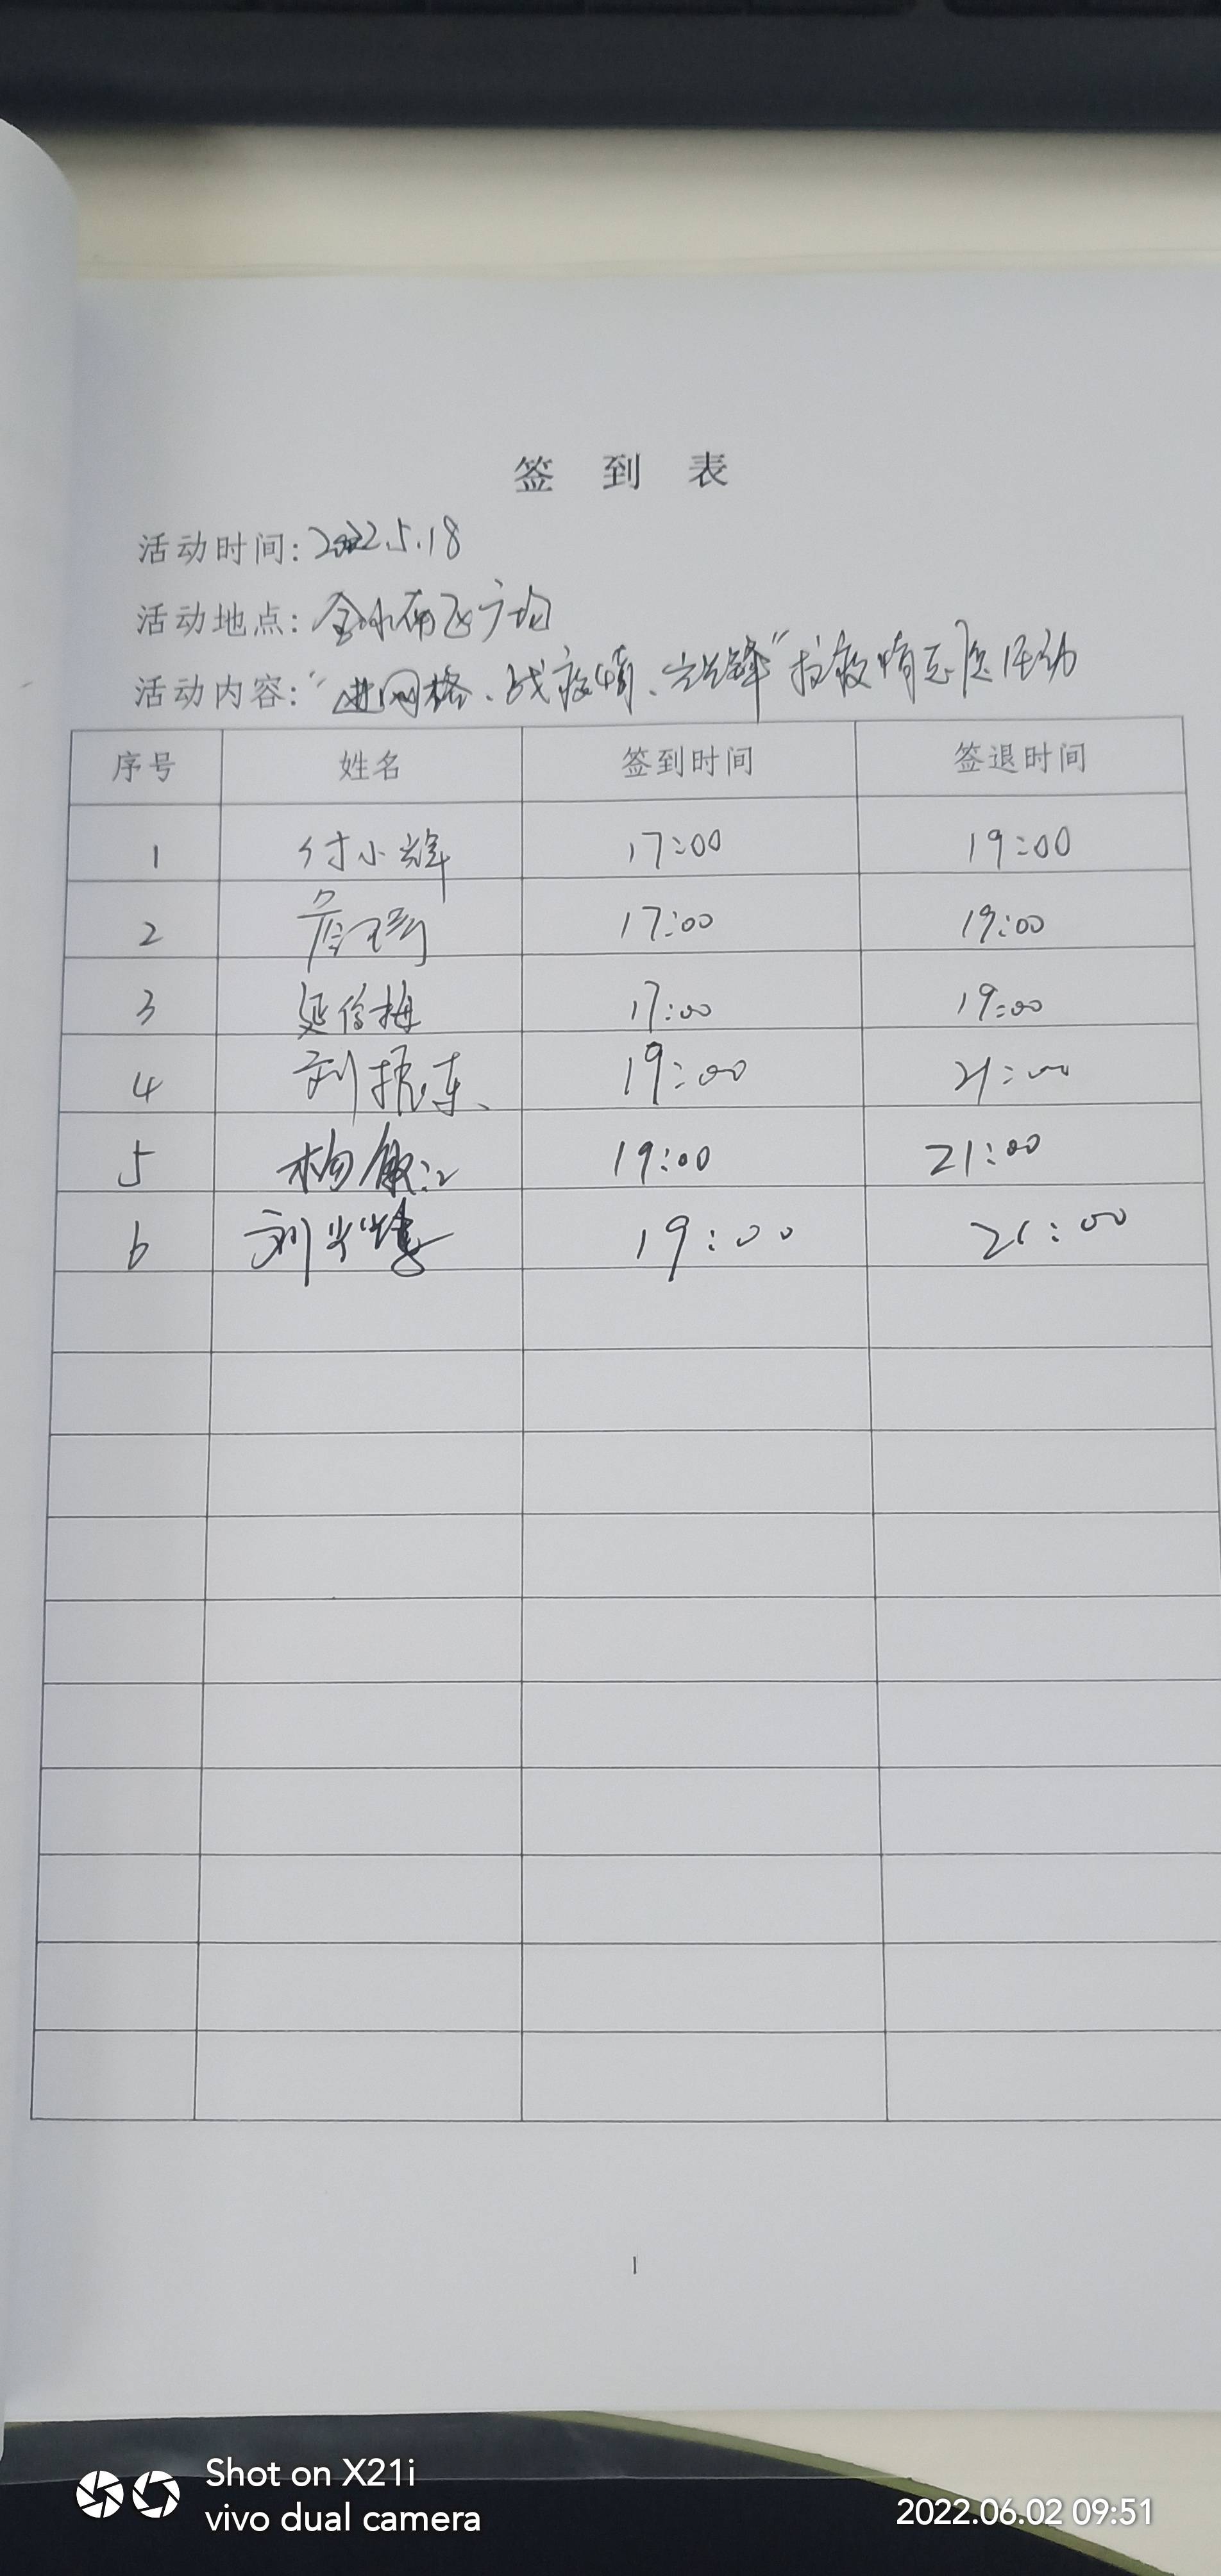 签 到 表
活动时间: 2022.5.18
活动地点: 金水
活动内容: "进网格、战疫情、立先锋"抗疫情志愿活动
序号 姓名 签到时间 签退时间
1 付小辉 17:00 19:00
2 17:00 19:00
3 延俊梅 17:00 19:00
4 刘振东 19:00 21:00
5 杨敏 19:00 21:00
6 刘 19:00 21:00
1
Shot on X21i
vivo dual camera
2022.06.02 09:51